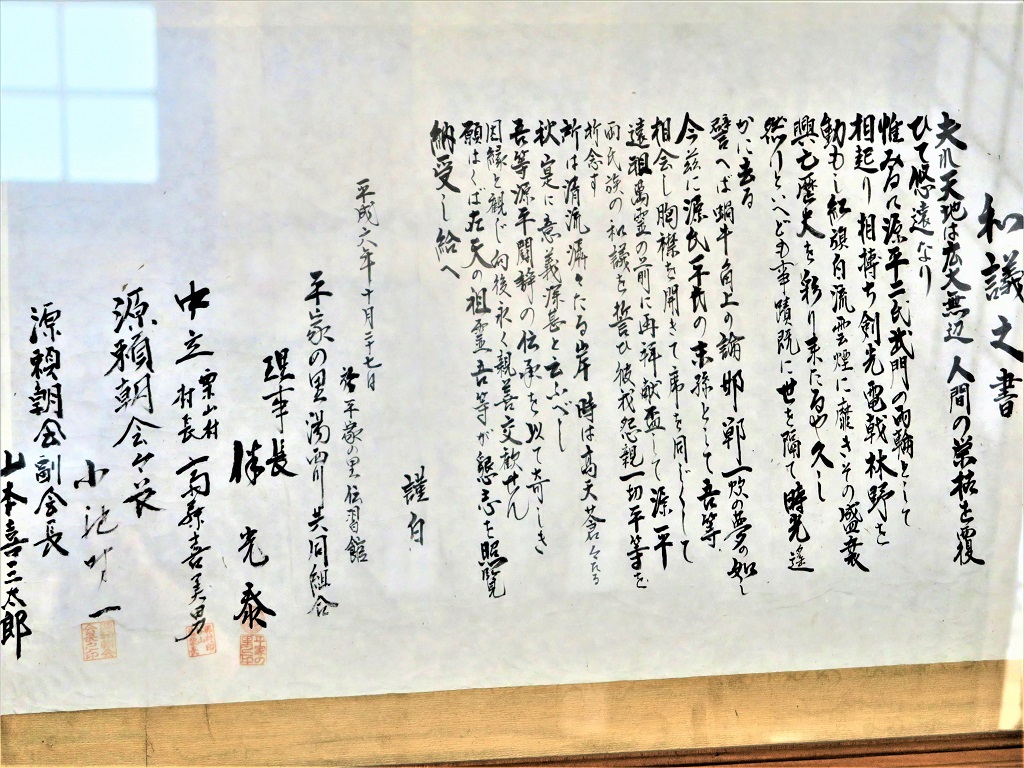 和議之書
夫れ天地は広大無辺 人間の栄枯を覆
ひて悠遠なり
惟みるに源平二氏武門の両輪として
相起り相搏ち剣光電戟林野を
動もし紅旗白流雲煙に靡きその盛衰
興亡歴史を彩り来たるや久し
然りといへども事蹟既に世を隔て時光遙
かに去る
譬へば蝸牛角上の論 邯鄲一炊の夢の如し
今茲に源氏平氏の末孫として吾等
相会し胸襟を開きて席を同じくして
遠祖萬霊の前に再拝献盃して源平
両氏族の和議を誓ひ彼我怨親一切平等を
祈念す
所は清流滔々たる岸 時は高天蒼々たる
秋 寔に意義深甚と云ふべし
吾等源平闘諍の伝承を以て奇しき
因縁と観じ向後永く親善交歓せん
願はくば在天の祖霊吾等が懇志を照覧
納受し給へ
謹白
平成六年十月二十七日
於 平家の里伝習館
平家の里湯西川共同組合
理事長 伴 光泰
中立 栗山村村長 斎藤喜美男
源頼朝会々長
小池
一
源頼朝会副会長
山本喜三太郎